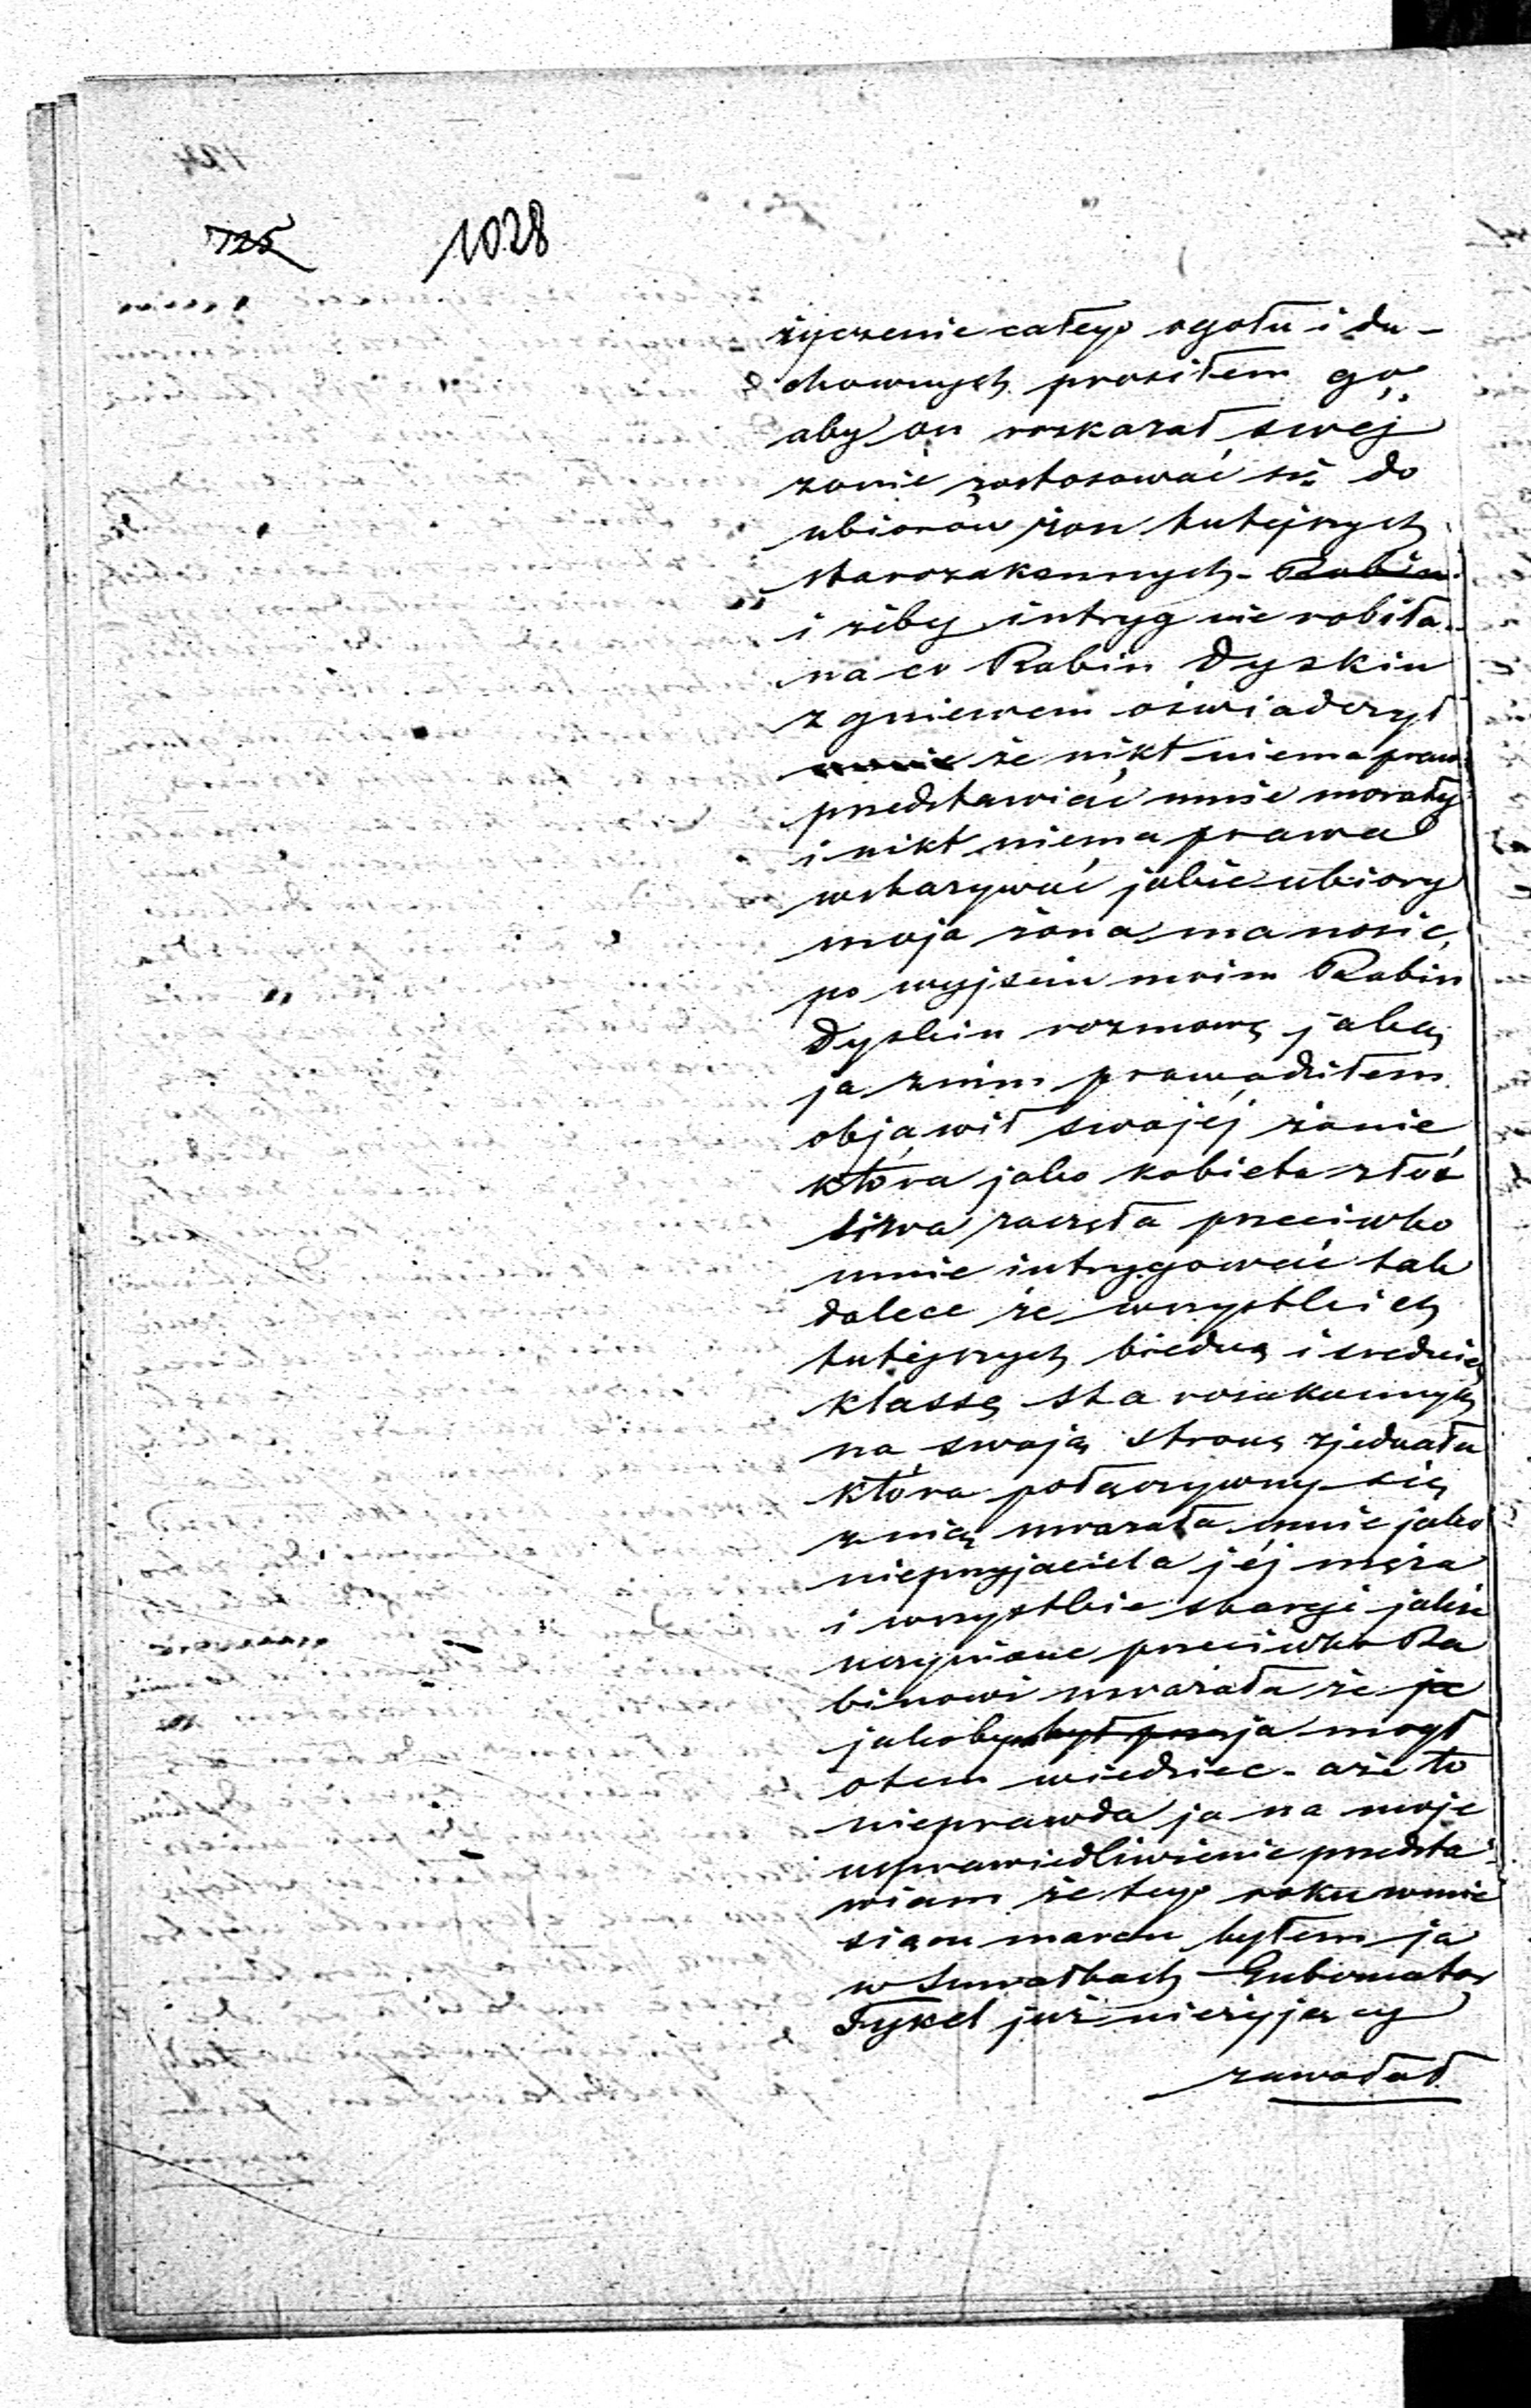 725 1028
życzenie całego ogołu i du-
chownych prosiłem go
aby on rozkazał swéj
żonie zastosować się do
ubiorów żon tutejszych
starozakonnych - Rabin
i żeby intryg nie robiła
na co Rabin Dyskin
z gniewem oświadczył
mnie że nikt niema praw
przedstawiać mnie morały
i nikt niema prawa
wskazywać jakie ubiory
moja żona ma nosić,
po wyjściu moim Rabin
Dyskin rozmowę jaką
ja znim prowadziłem
objawił swojéj żonie
która jako kobieta złoś
liwa zaczęła przeciwko
mnie intrygować tak
dalece że wszystkich
tutejszych biedną i srednią
klassę starozakonnych
na swoją stronę zjednała
która połączywszy się
z nią uważała mnie jako
nieprzyjaciela jéj męża
i wszystkie skargi jakie
uczynione przeciwko Ra
binowi uważała że ja
jakoby był ja mogł
otem wiedziec - aże to
nieprawda ja na moje
usprawiedliwienie przedsta
wiam że tego roku wmie
siącu marcu byłem ja
w Suwałkach Gubernator
Tykel już nieżyjący
zawołał